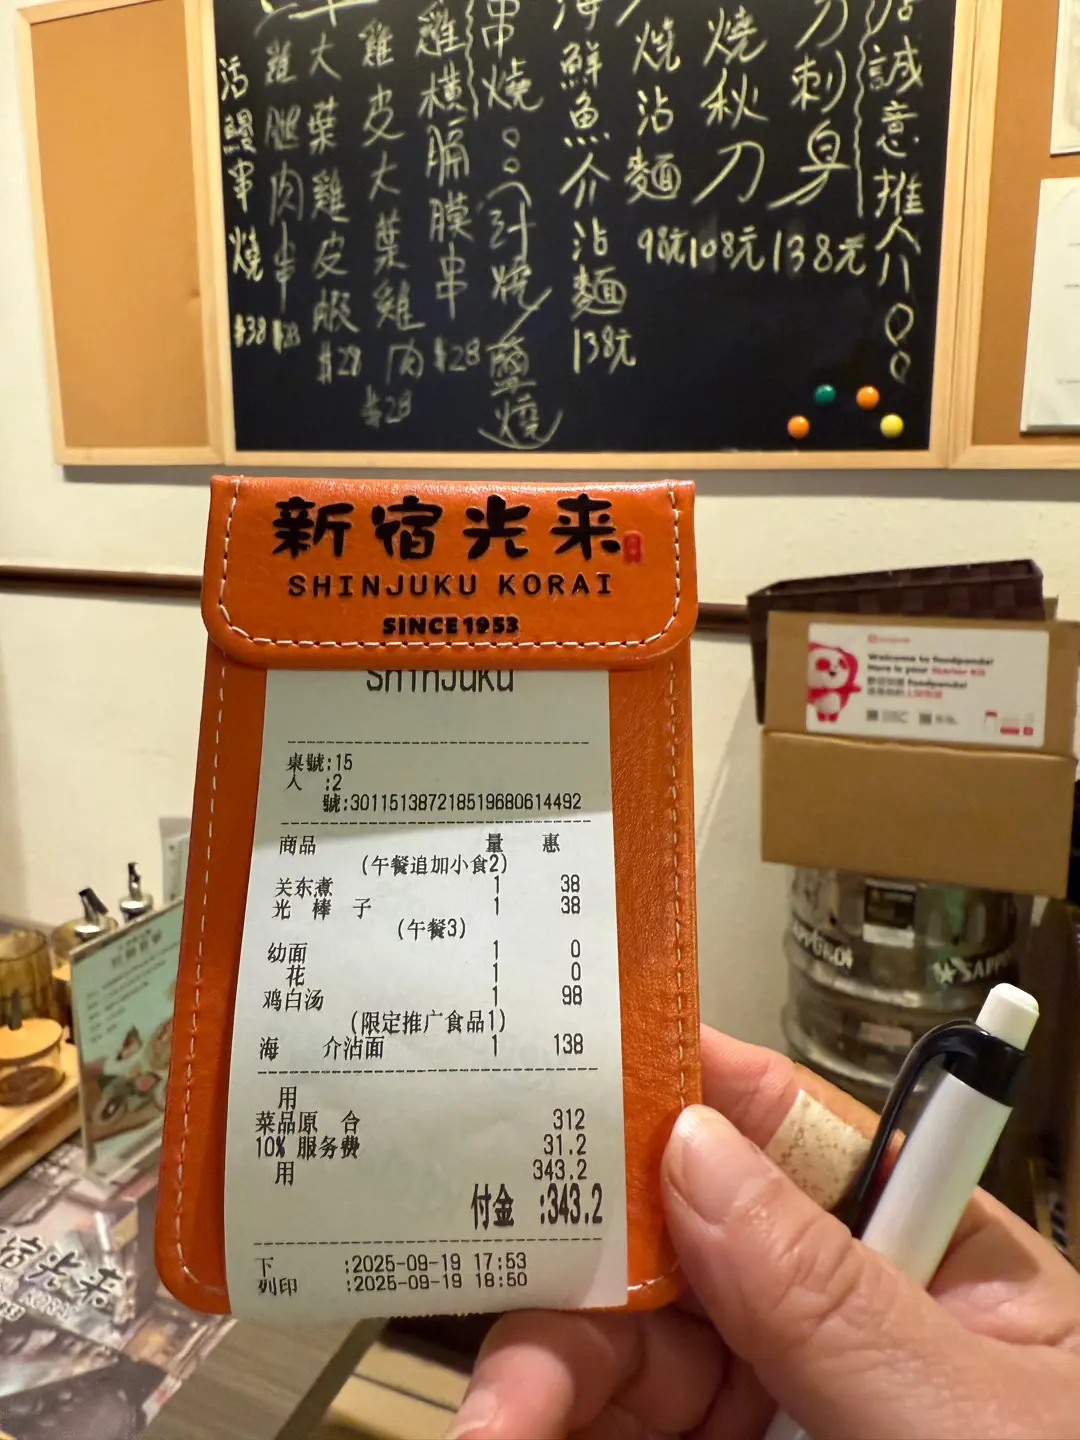 店誠意推介!!。。
刀刺身
138元
燒秋刀
108元
燒沾麵
98元
海鮮魚介沾麵
138元
串燒。。(汁燒/鹽燒)
雞橫膈膜串
$28
雞皮大葉雞肉
$28
大葉雞皮蝦
$28
雞腿肉串
$28
活鰻串燒
$38
新宿光来
SHINJUKU KORAI
SINCE1953
Shinjuku
桌號:15
人 :2
號:301151387218519680614492
商品 量 惠
(午餐追加小食2)
关东煮 1 38
光 棒 子 1 38
(午餐3)
幼面 1 0
花 1 0
鸡白汤 1 98
(限定推广食品1)
海 介沾面 1 138
用
菜品原 合 312
10% 服务费 31.2
用 343.2
付金 :343.2
下 :2025-09-19 17:53
列印 :2025-09-19 18:50
Welcome to foodpanda!
Here is your Starter Kit
SAPPORO
SAPPO
宿光来
KORAI